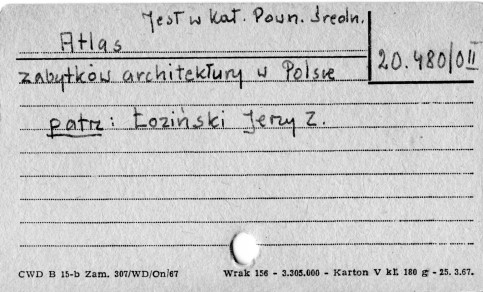 Jest w kat. Pown. średn.
Atlas
20.480/OII
zabytków architektury w Polsce
patrz: Łoziński Jerzy Z.
CWD B 15-b Zam. 307/WD/On/67 Wrak 156 - 3.305.000 - Karton V kl. 180 g - 25. 3.67.